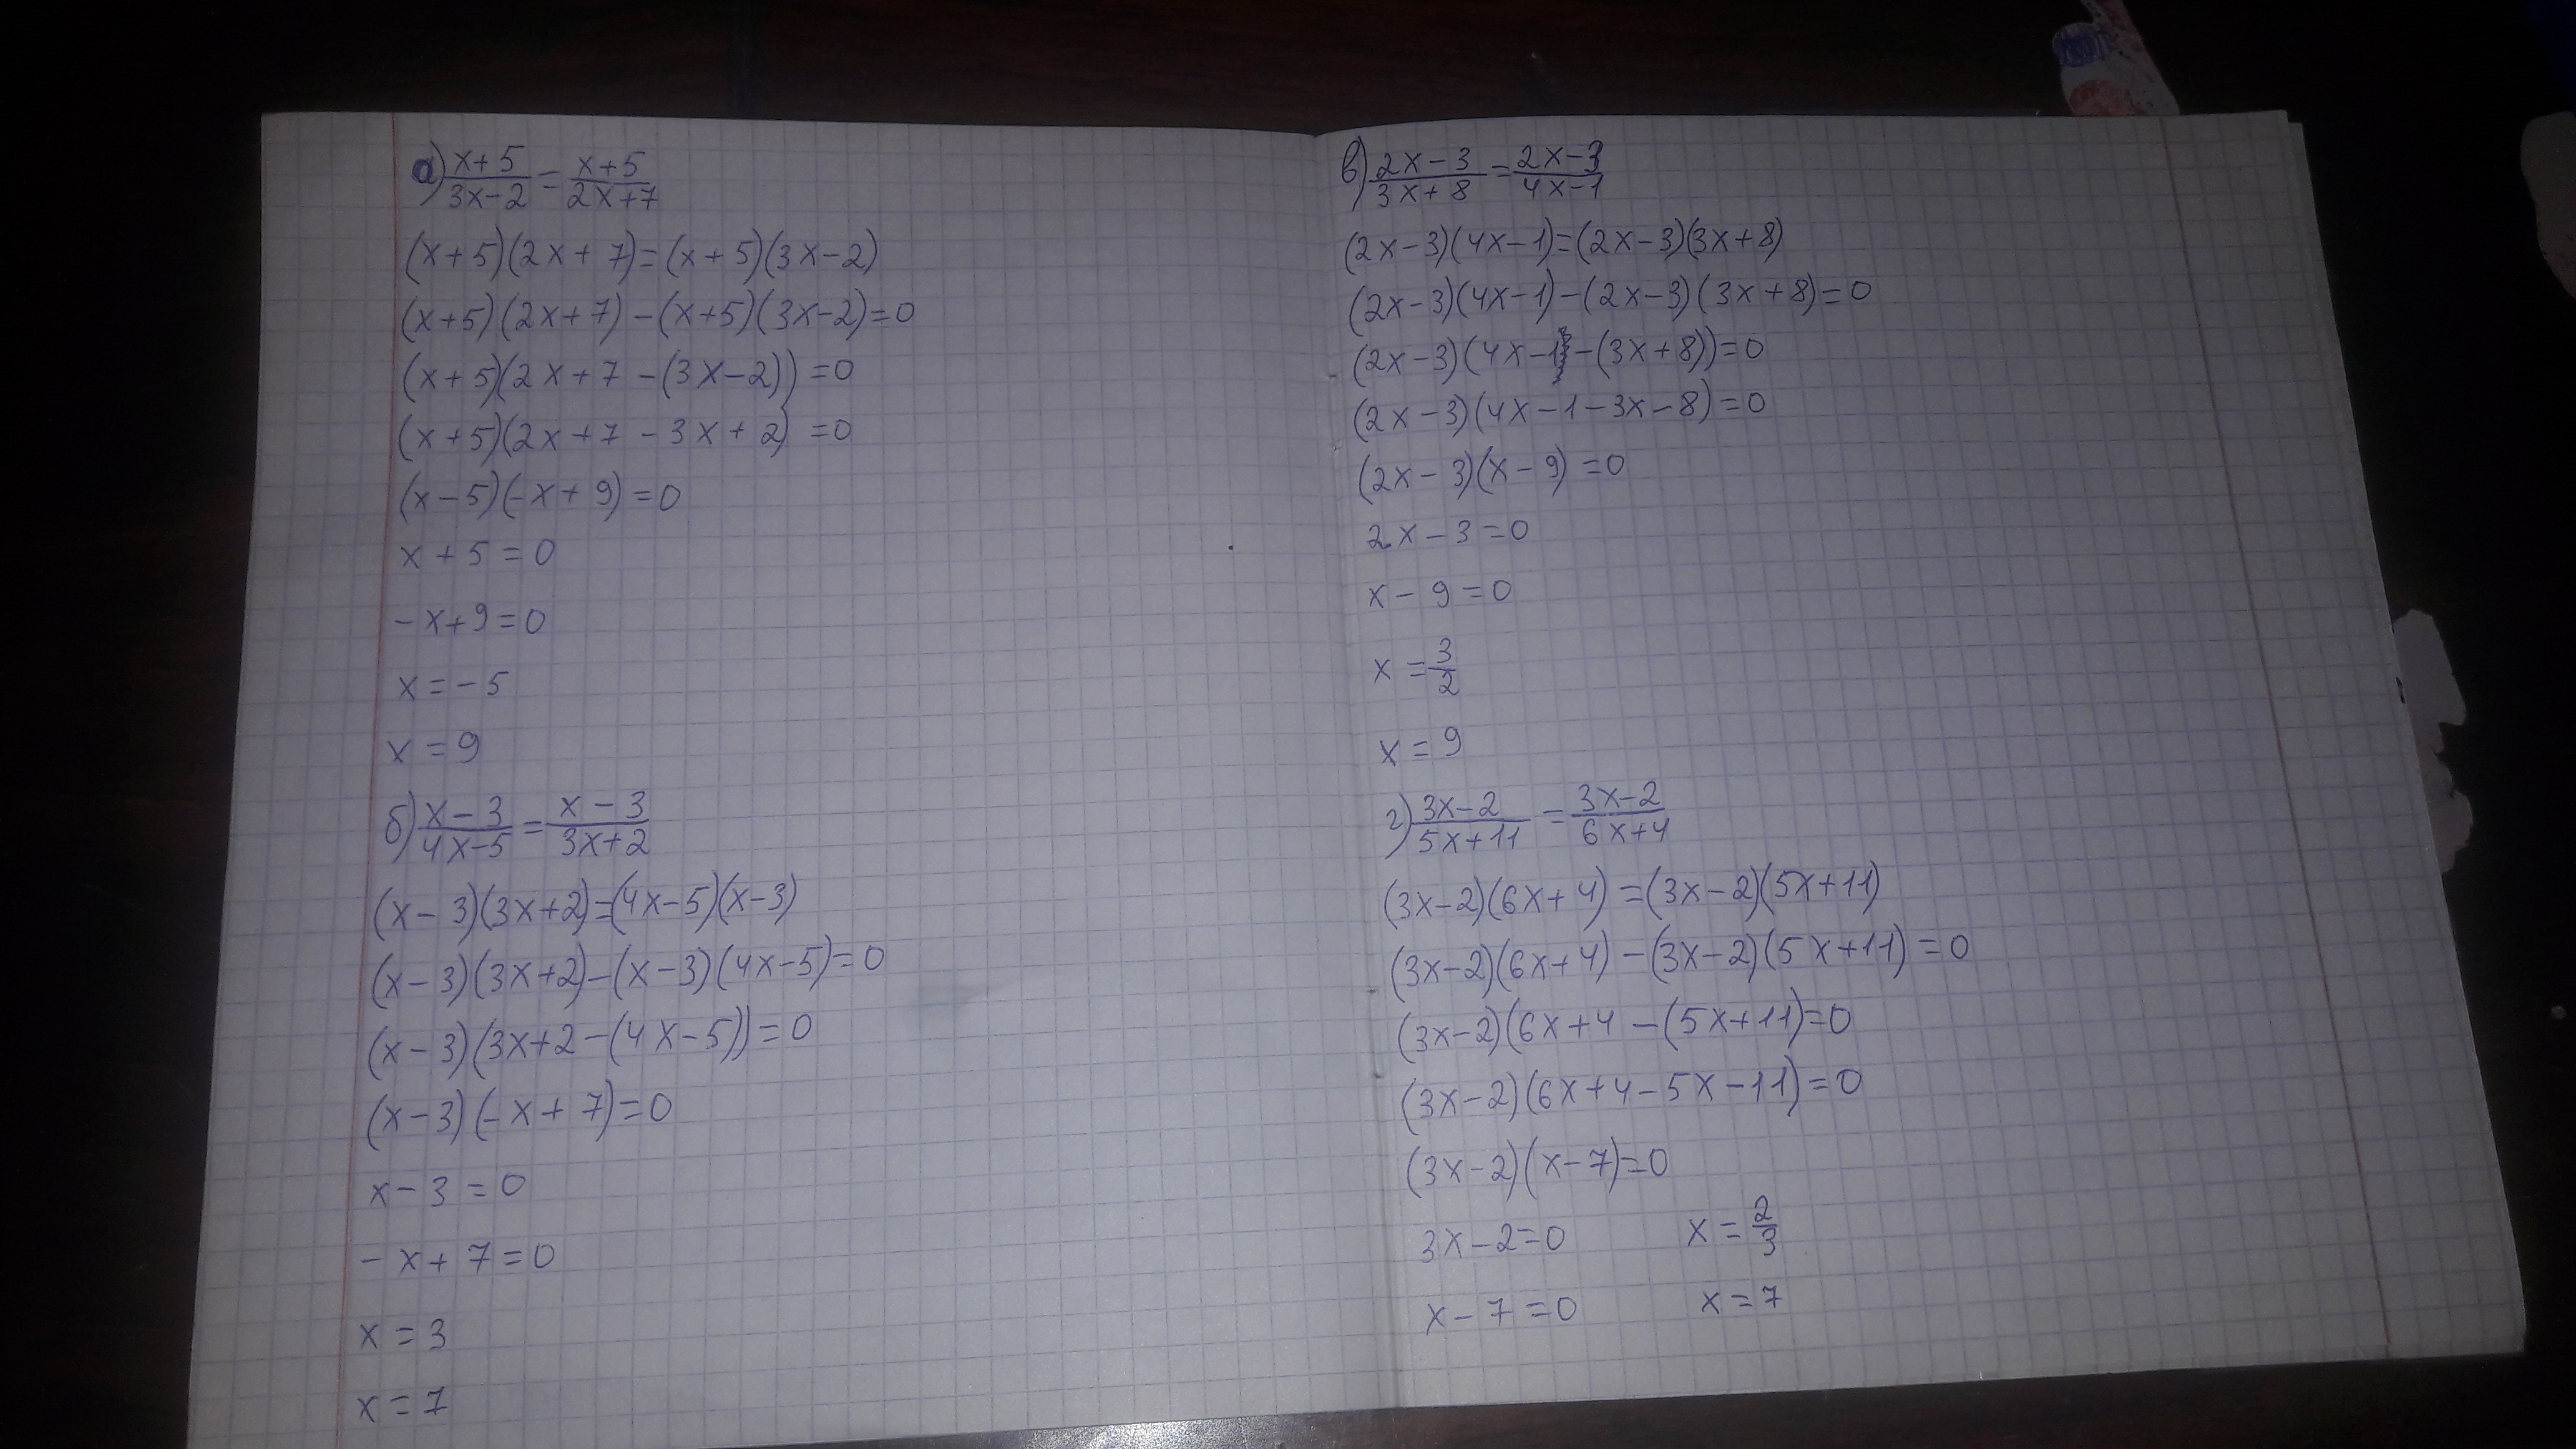 а) (x+5)/(3x-2) = (x+5)/(2x+7)
(x+5)(2x+7)=(x+5)(3x-2)
(x+5)(2x+7)-(x+5)(3x-2)=0
(x+5)(2x+7-(3x-2))=0
(x+5)(2x+7-3x+2)=0
(x-5)(-x+9)=0
x+5=0
-x+9=0
x=-5
x=9
б) (x-3)/(4x-5) = (x-3)/(3x+2)
(x-3)(3x+2)=(4x-5)(x-3)
(x-3)(3x+2)-(x-3)(4x-5)=0
(x-3)(3x+2-(4x-5))=0
(x-3)(-x+7)=0
x-3=0
-x+7=0
x=3
x=7
в) (2x-3)/(3x+8) = (2x-3)/(4x-1)
(2x-3)(4x-1)=(2x-3)(3x+8)
(2x-3)(4x-1)-(2x-3)(3x+8)=0
(2x-3)(4x-1-(3x+8))=0
(2x-3)(4x-1-3x-8)=0
(2x-3)(x-9)=0
2x-3=0
x-9=0
x=3/2
x=9
г) (3x-2)/(5x+11) = (3x-2)/(6x+4)
(3x-2)(6x+4)=(3x-2)(5x+11)
(3x-2)(6x+4)-(3x-2)(5x+11)=0
(3x-2)(6x+4-(5x+11)=0
(3x-2)(6x+4-5x-11)=0
(3x-2)(x-7)=0
3x-2=0 x=2/3
x-7=0 x=7